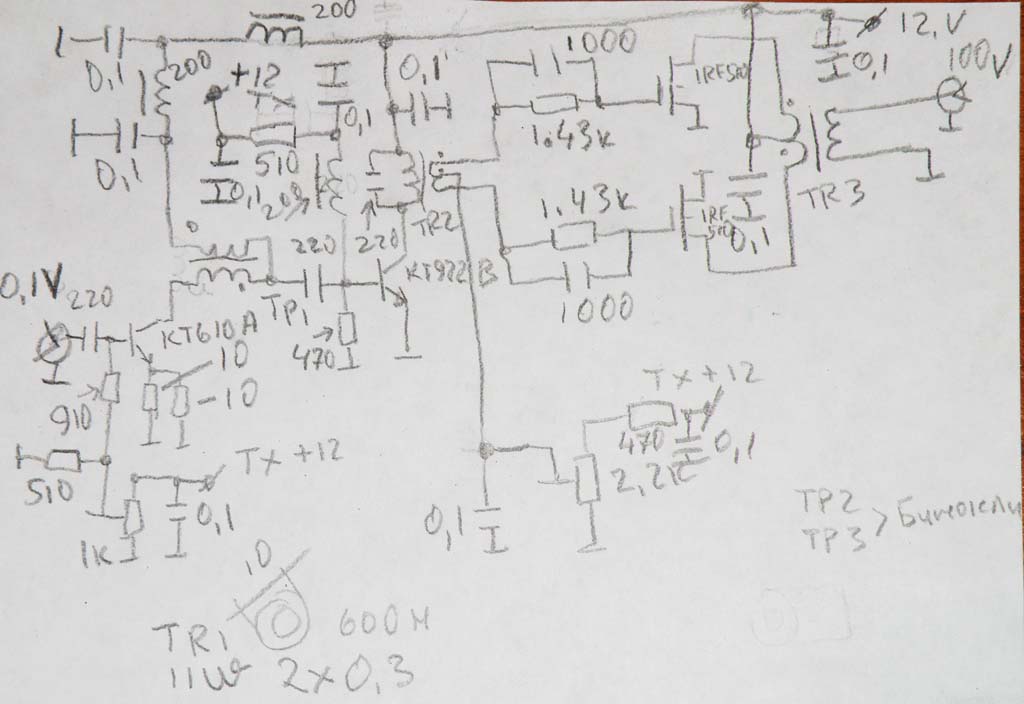 200
0,1
200
+12
Tx
0,1
0,1
0,1
510
0,1
1000
1.43k
IRF510
12,V
0,1
100V
TR3
0,1
1.43k
IRF
510
1000
TR2
220
220
KT922B
TP1
470
0,1V
220
KT610A
10
10
910
510
Tx +12
0,1
1k
Tx +12
470
0,1
2,2k
0,1
TP2
TP3 > Бинокли
10
TR1
600H
11W 2x0,3